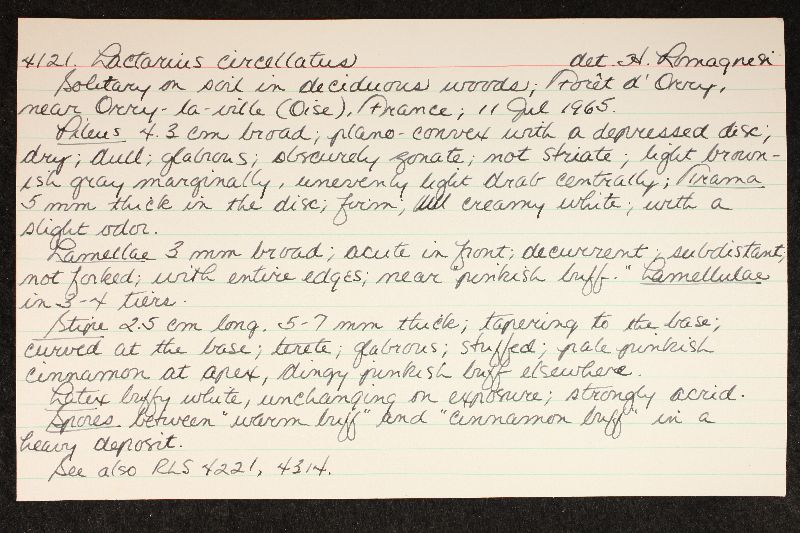 4121. Lactarius circellatus det. H. Romagnesi
Solitary on soil in deciduous woods; Forêt d'Orry,
near Orry-la-ville (Oise), France; 11 Jul 1965.
Pileus 4.3 cm broad; plano-convex with a depressed disc;
dry; dull; glabrous; obscurely zonate; not striate; light brown-
ish gray marginally, unevenly light drab centrally; Trama
5 mm thick in the disc; firm; creamy white; with a
slight odor.
Lamellae 3 mm broad; acute in front; decurrent; subdistant;
not forked; with entire edges; near "pinkish buff." Lamellulae
in 3-4 tiers.
Stipe 2.5 cm long, 5-7 mm thick; tapering to the base;
curved at the base; terete; glabrous; stuffed; pale pinkish
cinnamon at apex, dingy pinkish buff elsewhere.
Latex buffy white, unchanging on exposure; strongly acrid.
Spores between "warm buff" and "cinnamon buff" in a
heavy deposit.
See also RLS 4221, 4314.